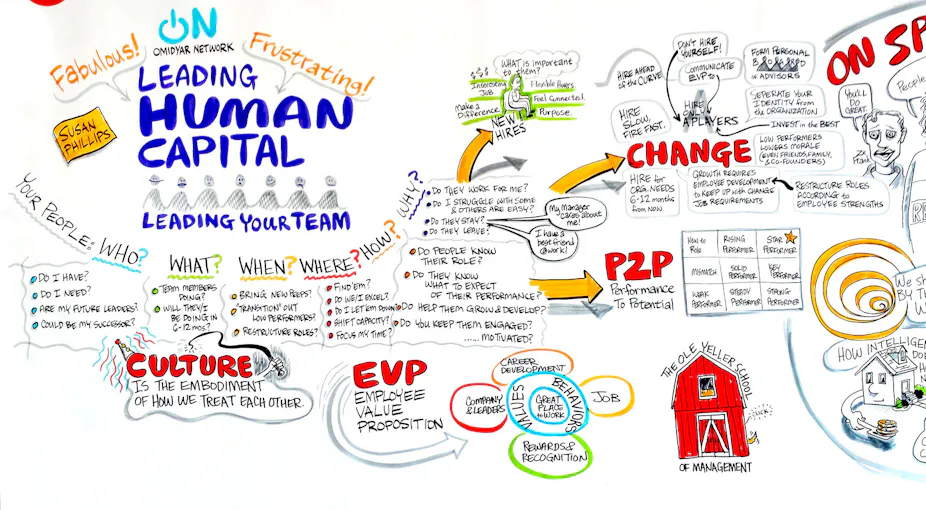 ON
OMIDYAR NETWORK
Fabulous!
Frustrating!
LEADING
HUMAN
CAPITAL
SUSAN
PHILLIPS
LEADING YOUR TEAM
YOUR PEOPLE:
WHO?
DO I HAVE?
DO I NEED?
ARE MY FUTURE LEADERS?
COULD BE MY SUCCESSOR?
WHAT?
TEAM MEMBERS
DOING?
WILL THEY/I
BE DOING IN
6-12 MOS?
WHEN?
BRING NEW PEEPS?
TRANSITION OUT
LOW PERFORMERS?
RESTRUCTURE ROLES?
WHERE?
FIND 'EM?
DO WE/I EXCEL?
DO I LET 'EM DOWN?
SHIFT CAPACITY?
FOCUS MY TIME?
HOW?
DO PEOPLE KNOW
THEIR ROLE?
DO THEY KNOW
WHAT TO EXPECT
OF THEIR PERFORMANCE?
DO HELP THEM GROW & DEVELOP?
DO YOU KEEP THEM ENGAGED?
...... MOTIVATED?
WHY?
DO THEY WORK FOR ME?
DO I STRUGGLE WITH SOME
& OTHERS ARE EASY?
DO THEY STAY?
DO THEY LEAVE?
My Manager
cares about
me!
I have a
best friend
@work!
WHAT is important
to them?
$$$
Interesting
JOB
Make a
Difference
Flexible Hours
Feel Connected.
Purpose.
NEW
HIRES
HIRE AHEAD
OF THE CURVE
DON'T HIRE
YOURSELF!
COMMUNICATE
EVP
FORM PERSONAL
BOARD
OF ADVISORS
HIRE
SLOW,
FIRE FAST.
HIRE
ONLY
A PLAYERS
SEPERATE YOUR
IDENTITY from
the ORGANIZATION
INVEST in the BEST
CHANGE
LOW PERFORMERS
LOWERS MORALE
(EVEN FRIENDS, FAMILY,
& CO-FOUNDERS)
HIRE for
ORG. NEEDS
6-12 months
from NOW
GROWTH REQUIRES
EMPLOYEE DEVELOPMENT
to KEEP UP with CHANGE
JOB REQUIREMENTS
RESTRUCTURE ROLES
ACCORDING to
EMPLOYEE STRENGTHS
P2P
Performance
To Potential
New to
Role
RISING
PERFORMER
STAR
PERFORMER
MISMATCH
SOLID
PERFORMER
KEY
PERFORMER
WEAK
PERFORMER
STEADY
PERFORMER
STRONG
PERFORMER
CULTURE
IS THE EMBODIMENT
OF HOW WE TREAT EACH OTHER.
EVP
EMPLOYEE
VALUE
PROPOSITION
CAREER
DEVELOPMENT
COMPANY
& LEADERS
VALUES
BEHAVIORS
GREAT
PLACE
to WORK
JOB
REWARDS &
RECOGNITION
THE OLE YELLER SCHOOL
CLUCK
OF MANAGEMENT
ON SP
YOU'LL
DO
GREAT
Ze
Frank
People
We s
By T
HOW INTELLIGEN